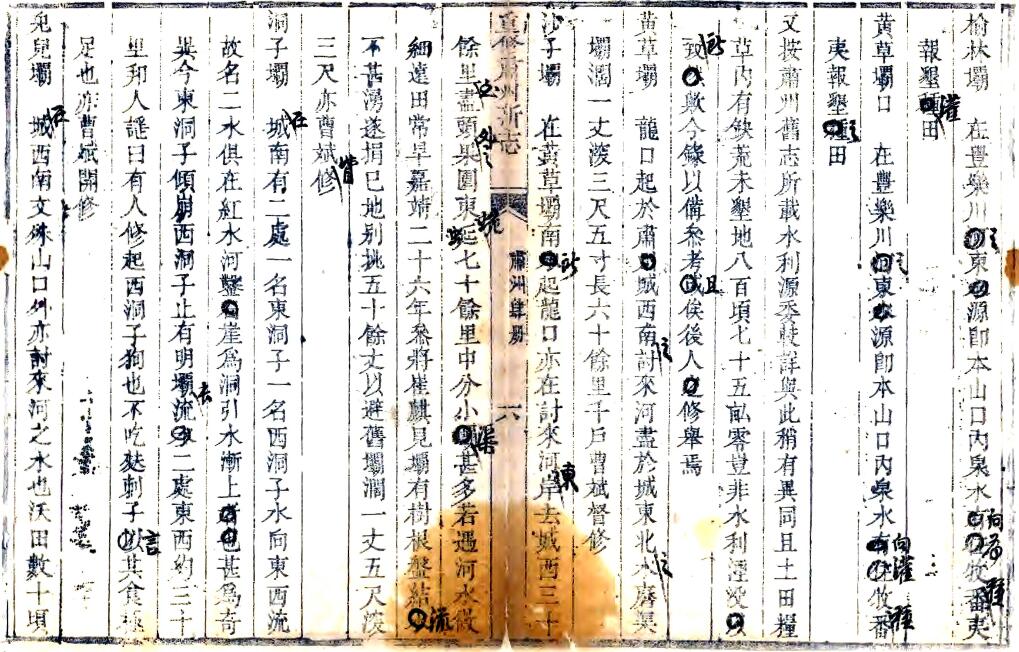 榆林壩　在豐樂川東源即本山口內泉水牧番夷
報墾田
黃草壩口　在豐樂川東源即本山口內泉水牧番
夷報墾田
又按肅州舊志所載水利源委較詳與此稍有異同且土田糧
草內有缺荒未墾地八百頃七十五畝零豈非水利湮
歟今錄以備參考俟後人修舉焉
黃草壩　龍口起於肅城西南討來河盡於城東北
壩濶一丈深三尺五寸長六十餘里千戶曹斌督修
沙子壩　在黃草壩南起龍口亦在討來河岸去城西三十
餘里盡頭果園東延七十餘里中分小甚多若遇河水微
細遠田常旱嘉靖二十六年參將崔麒見壩有樹根盤結
不甚湧遂捐己地別挑五十餘丈以避舊壩濶一丈五尺深
三尺亦曹斌修
洞子壩　城南有二處一名東洞子一名西洞子水向東西流
故名二水俱在紅水河鑿崖爲洞引水漸上甚爲奇
異今東洞子傾崩西洞子止有明壩流二處東西約三十
里和人謠曰有人修起西洞子狗也不吃麩剌子以其食極
足也亦曹斌開修
兔兒壩　城西南文殊山口外亦討來河之水也沃田數十頃
重修肅州新志
肅州肆册
六